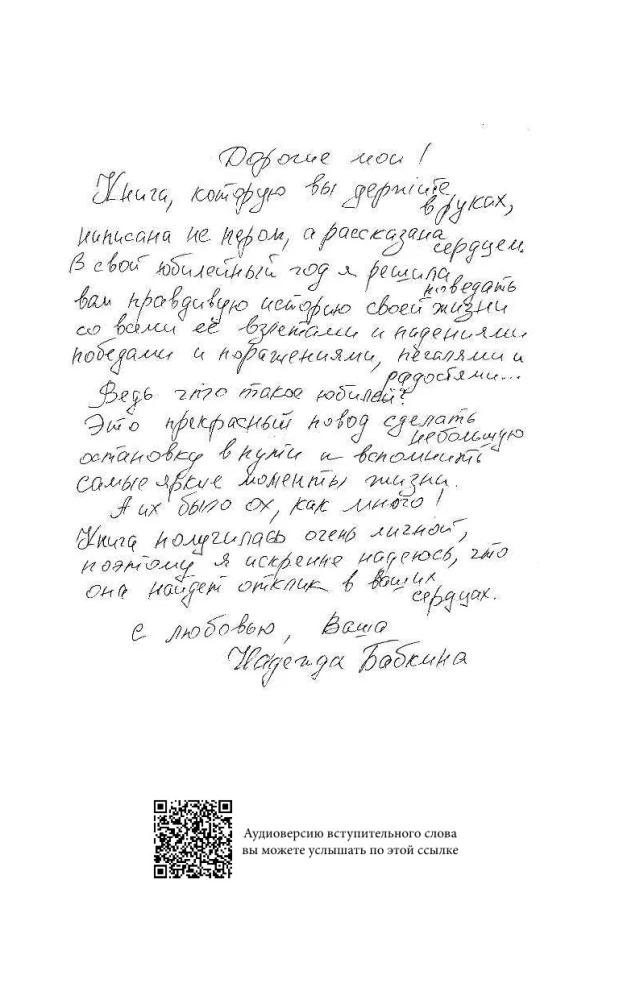 Дорогие мои!
Книга, которую вы держите
в руках,
написана не пером, а рассказана
сердцем.
В свой юбилейный год я решила
поведать
вам правдивую историю своей жизни
со всеми её взлетами и падениями,
победами и поражениями, печалями и
радостями...
Ведь что такое юбилей?
Это прекрасный повод сделать
небольшую
остановку в пути и вспомнить
самые яркие моменты жизни.
А их было ох, как много!
Книга получилась очень личной,
поэтому я искренне надеюсь, что
она найдет отклик в ваших
сердцах.
С любовью, Ваша
Надежда Бабкина
Аудиоверсию вступительного слова
вы можете услышать по этой ссылке